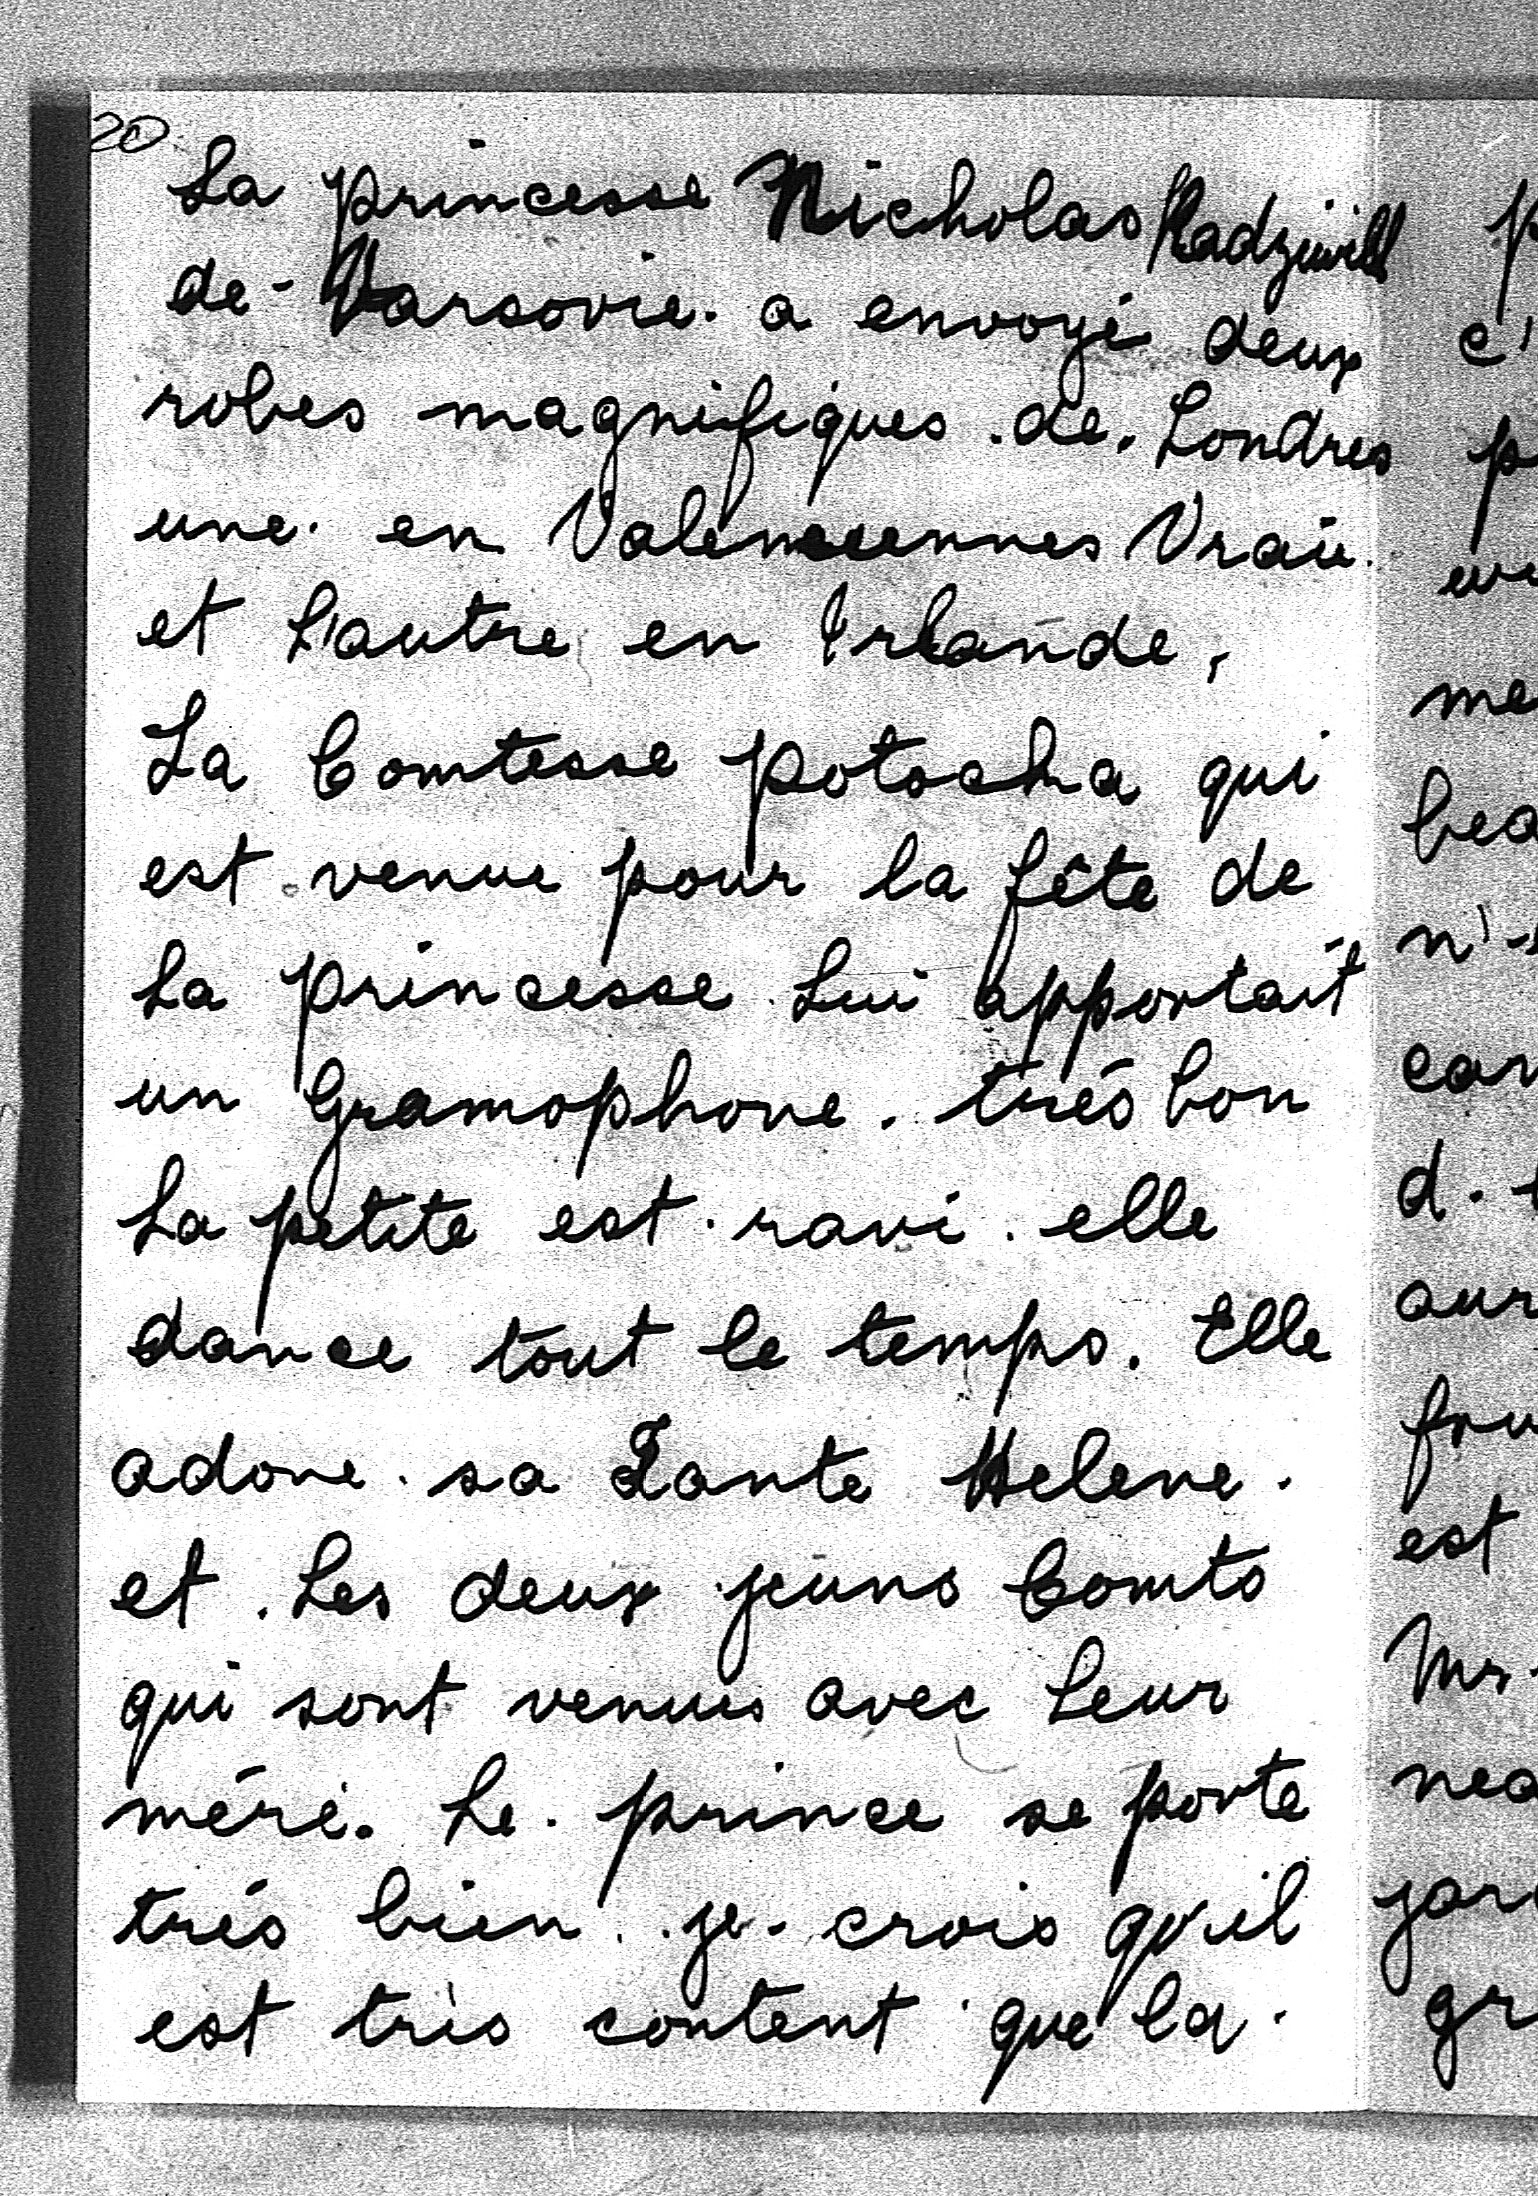 20
La princesse Nicholas Radziwill
de - Varsovie. a envoyé deux
robes magnifiques . de. Londres
une. en Valenciennes Vraie.
et L'autre en Irlande,
La Comtesse potocka qui
est venue pour la fête de
La princesse Lui apportait
un Gramophone. trés bon
La petite est. ravi. elle
dance tout le temps. Elle
adore. sa Tante Helene.
et. Les deux jeuns Comts
qui sont venues avec Leur
mére. Le. prince se porte
trés bien. je. crois qu'il
est très content que la.
c'
me
n'
d.
est